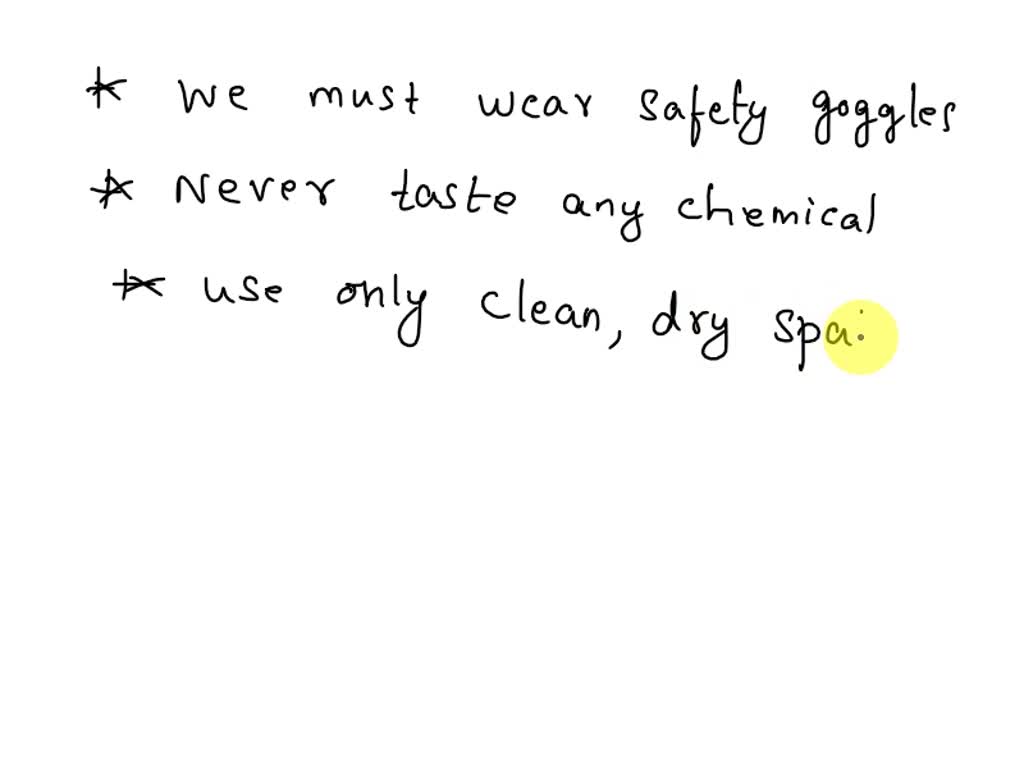 * We must wear safety goggles
* Never taste any chemical
* use only clean, dry spa